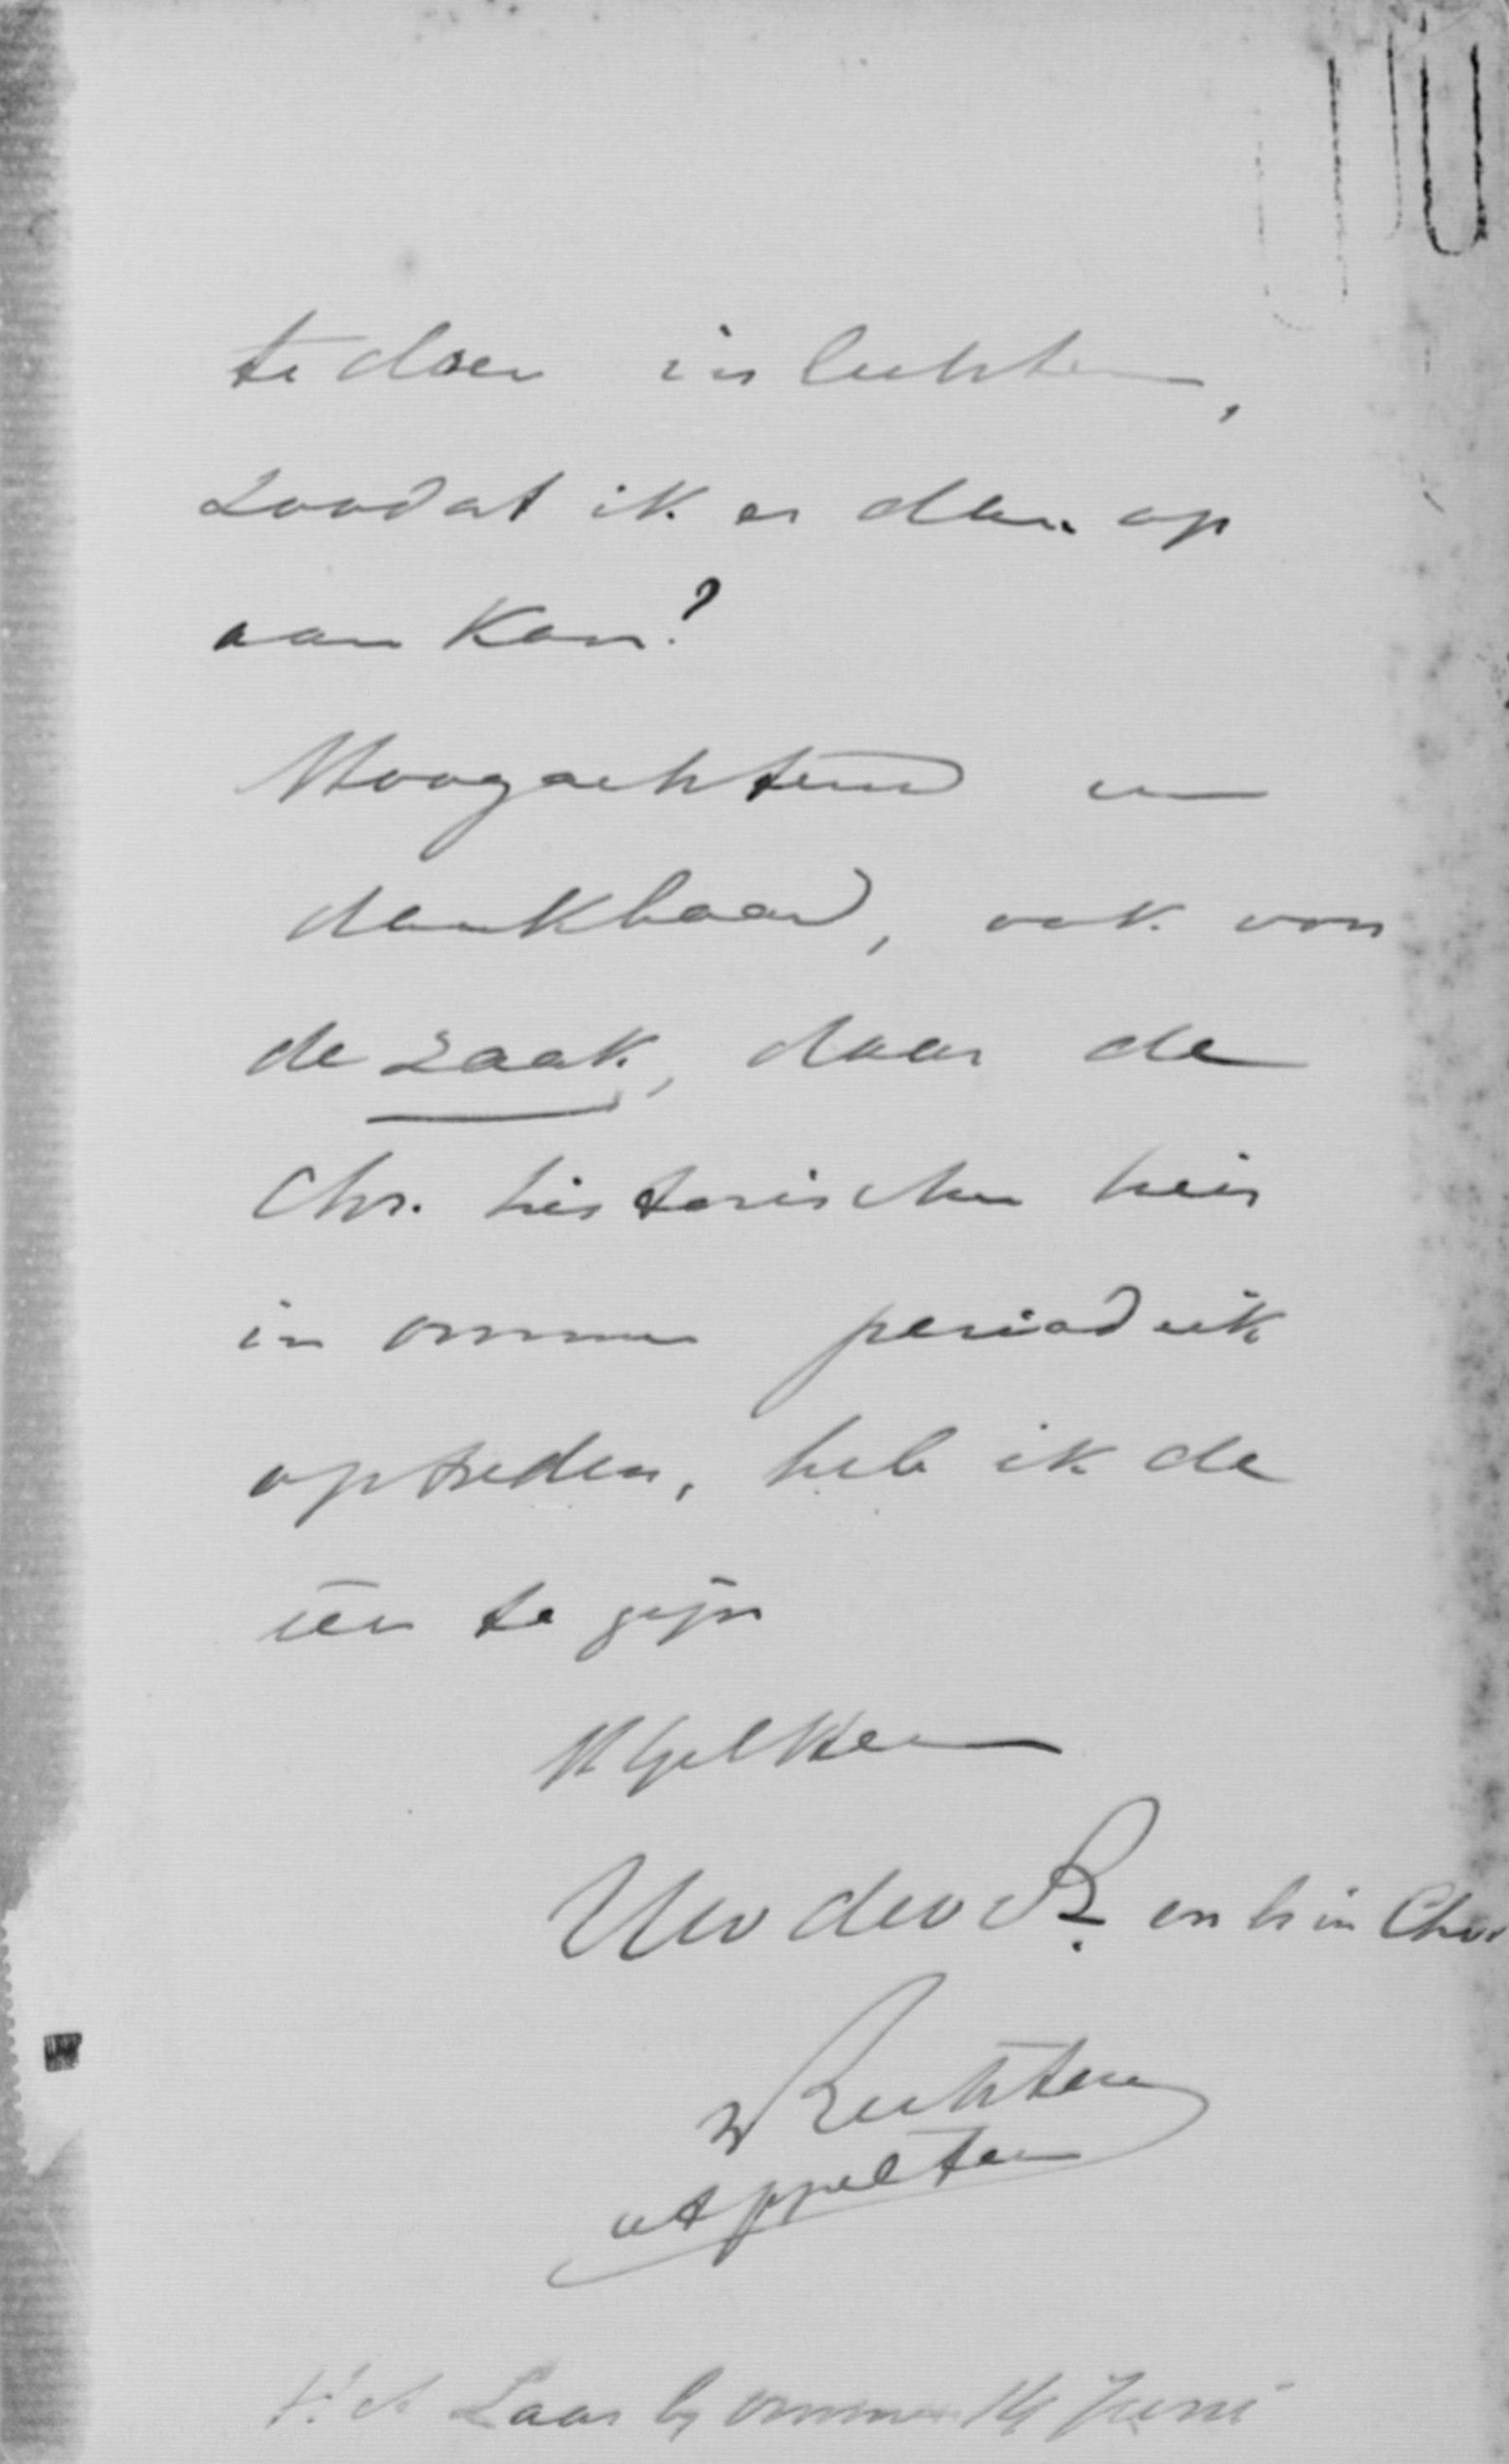 te doen inlichten,
zoodat ik er dan op
aan kan?
Hoogachtend en
dankbaar, ook voor
de zaak, daar de
Chr. historischen hier
in Ommen periodiek
optreden, heb ik de
eer te zijn
HGel
Uw dev Dr en br in Chr
Rechteren
Appeltern
't Laar bij Ommen 14 Juni